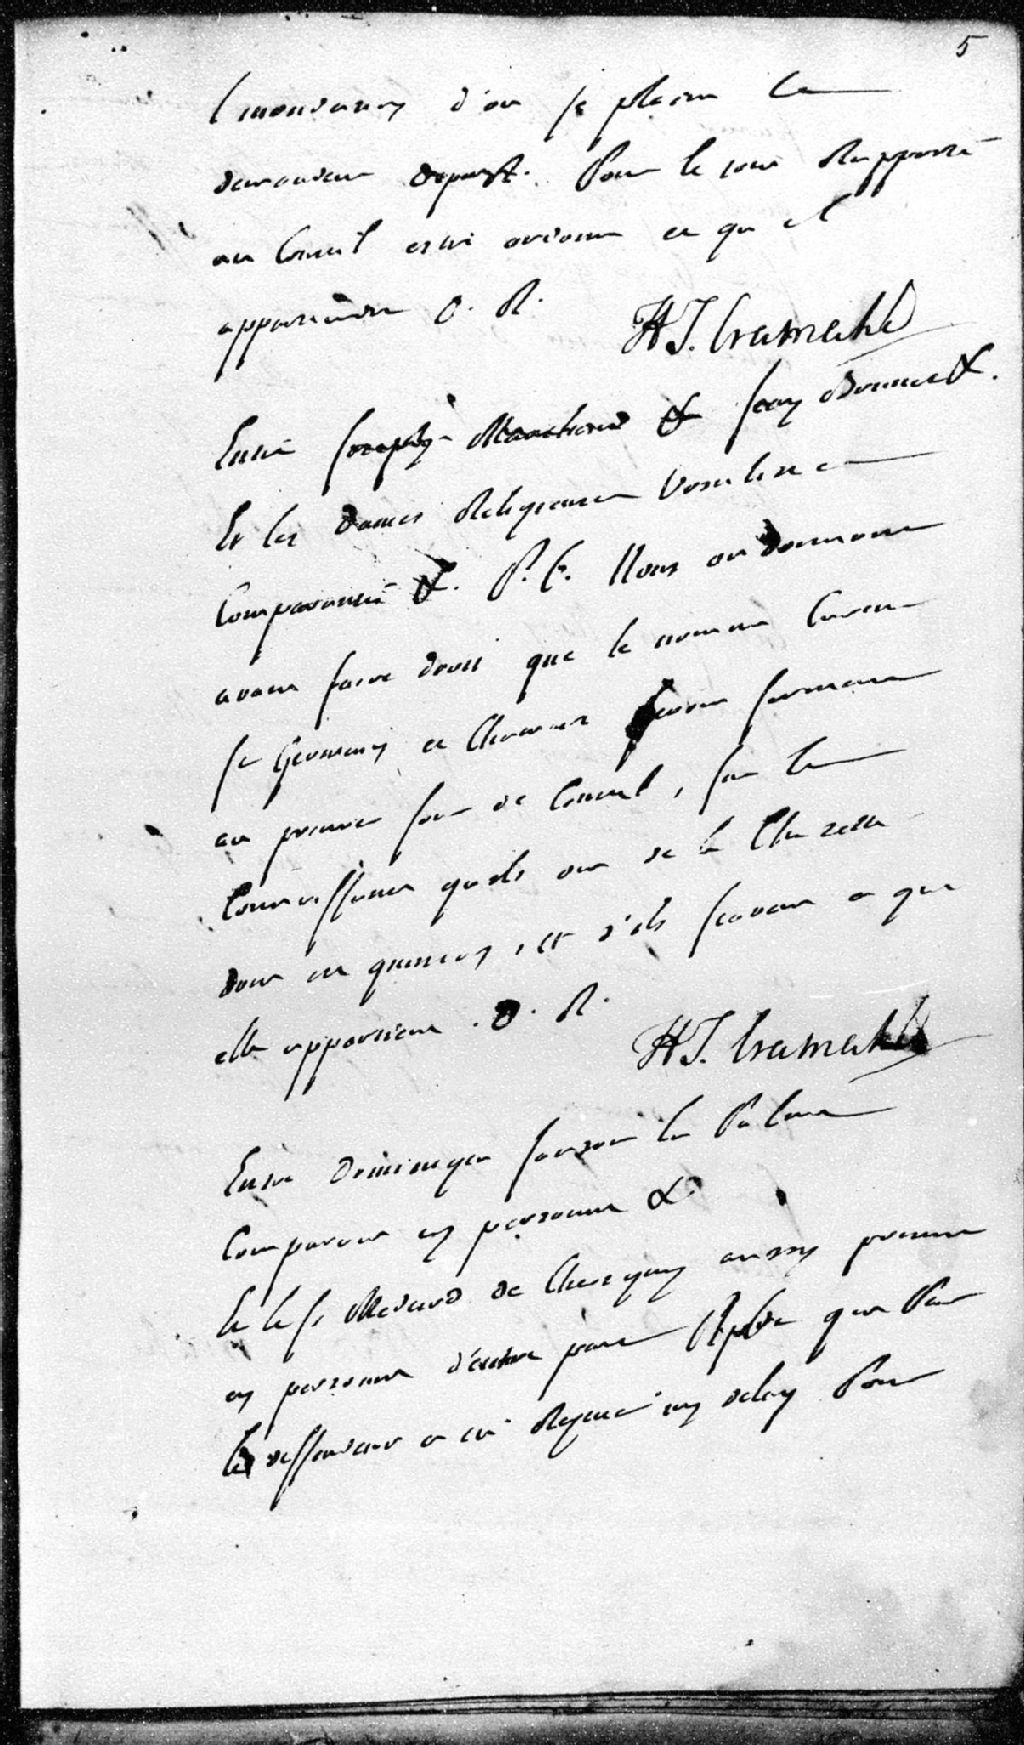 5
d'on se plaint le
demandeur Pour le tout Rapporté
au Conseil estre ordonné ce qu'il
appartiendra O. R.
HT. Cramahé
Entre Joseph Marchand & Jean Bonnet &.
Et les Dames Religieuses Ursulines
Comparant &. P. C. Nous ordonnons
avant faire droit que le nommé
St Germain et feront serment
au premier jour de Conseil, sur la
Connoissance quils ont de la
dont est question, et s'ils scavent a qui
elle appartient. O. R.
HT. Cramahé
Entre Dominique La Palme
Comparant en personne &
Et le Sr de aussy present
en personne d'autre part que Par
le deffendeur a eté Requis un delay Pour